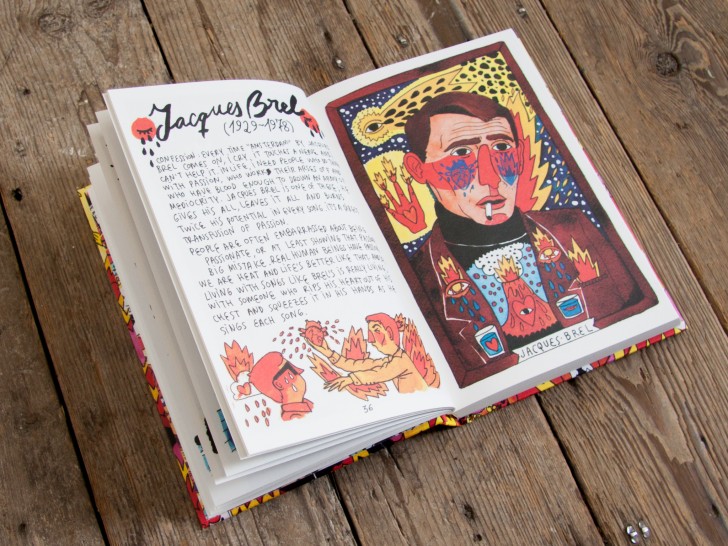 Jacques Brel
(1929-1978)
CONFESSION: EVERY TIME "AMSTERDAM" BY JACQUES
BREL COMES ON, I CRY. IT TOUCHES A NERVE. AND I
CAN'T HELP IT. IN LIFE, I NEED PEOPLE WHO
WITH PASSION, WHO WORK THEIR ARSES OFF AND
WHO HAVE BLOOD ENOUGH TO DROWN AN
MEDIOCRITY. JACQUES BREL IS ONE OF THESE. HE
GIVES HIS ALL, LEAVES IT ALL AND BURNS
TWICE HIS POTENTIAL IN EVERY SONG. IT'S A DIRECT
TRANSFUSION OF PASSION.
PEOPLE ARE OFTEN EMBARRASSED ABOUT BEING
PASSIONATE OR AT LEAST SHOWING THAT PASSION.
BIG MISTAKE. REAL HUMAN BEINGS HAVE PASSION.
WE ARE HEAT AND LIFE'S BETTER LIKE THAT. AND
LIVING WITH SONGS LIKE BREL'S IS REALLY LIVING
WITH SOMEONE WHO RIPS HIS HEART OUT OF HIS
CHEST AND SQUEEZES IT IN HIS HANDS AS HE
SINGS EACH SONG.
36
JACQUES·BREL